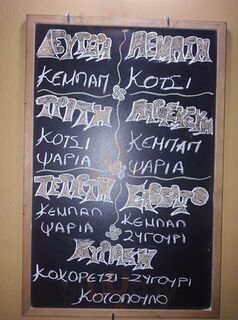 ΔΕΥΤΕΡΑ
ΚΕΜΠΑΠ
ΠΕΜΠΤΗ
ΚΟΤΣΙ
ΤΡΙΤΗ
ΚΟΤΣΙ
ΨΑΡΙΑ
ΠΑΡΑΣΚΕΥΗ
ΚΕΜΠΑΠ
ΨΑΡΙΑ
ΤΕΤΑΡΤΗ
ΚΕΜΠΑΠ
ΨΑΡΙΑ
ΣΑΒΒΑΤΟ
ΚΕΜΠΑΠ
ΖΥΓΟΥΡΙ
ΚΥΡΙΑΚΗ
ΚΟΚΟΡΕΤΣΙ - ΖΥΓΟΥΡΙ
ΚΟΤΟΠΟΥΛΟ